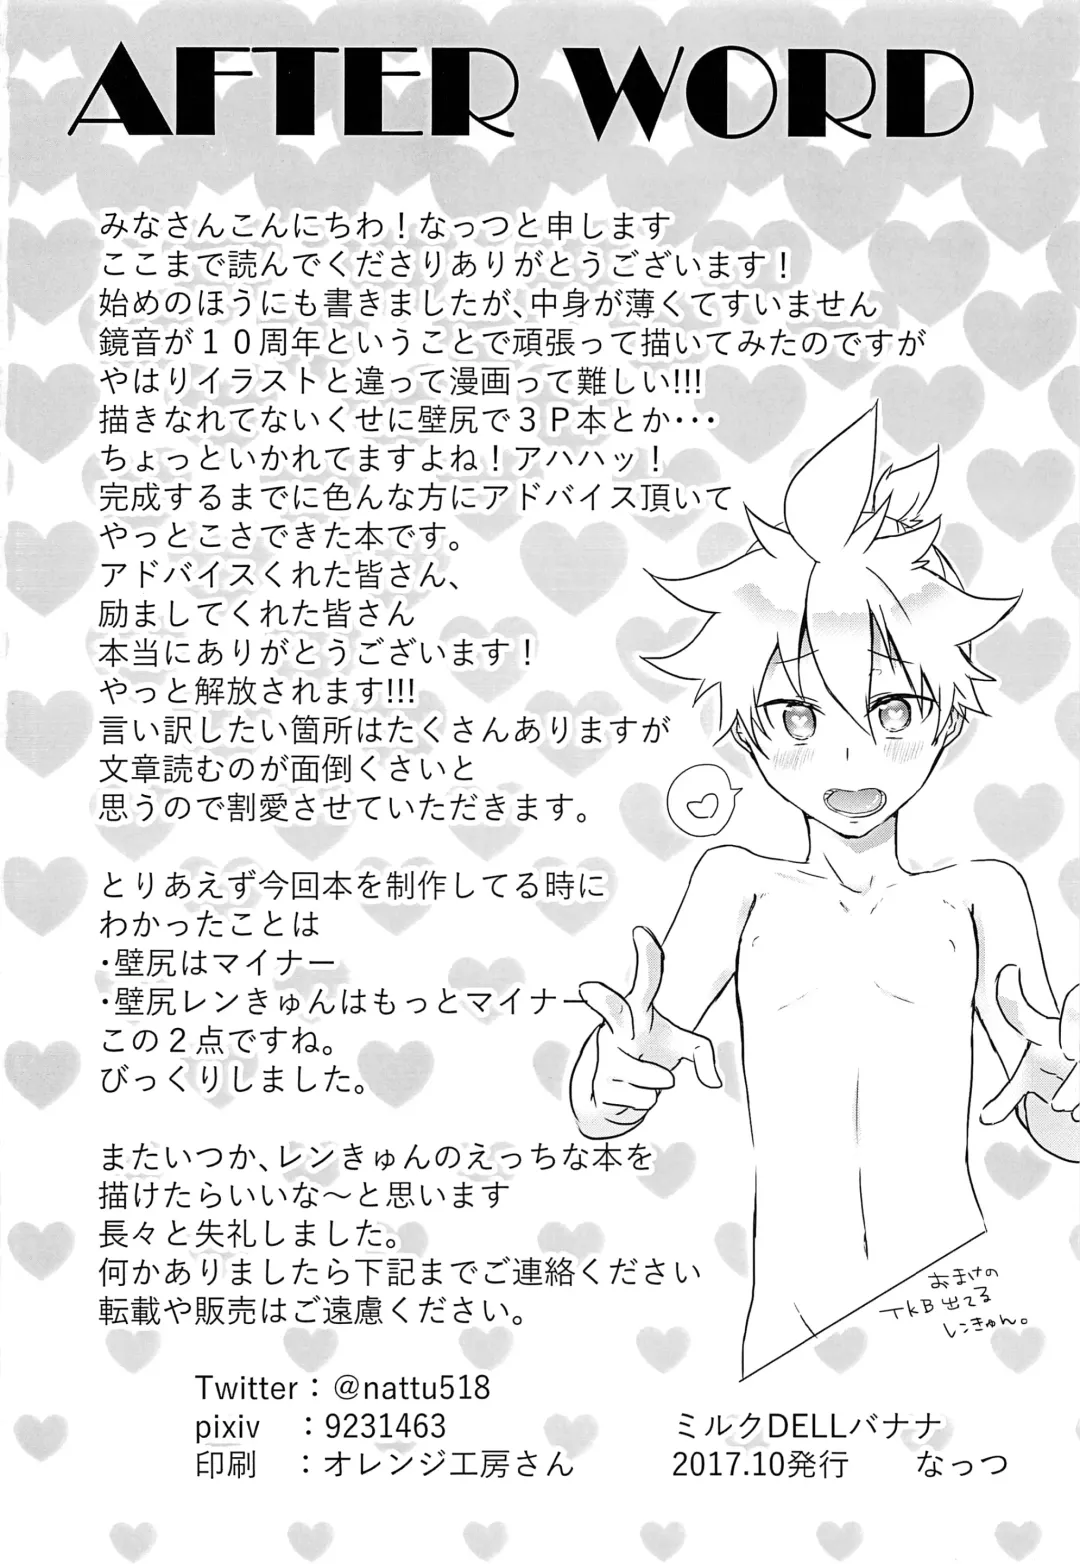 AFTER WORD
みなさんこんにちわ！なっつと申します
ここまで読んでくださりありがとうございます！
始めのほうにも書きましたが、中身が薄くてすいません
鏡音が１０周年ということで頑張って描いてみたのですが
やはりイラストと違って漫画って難しい!!!
描きなれてないくせに壁尻で３Ｐ本とか・・・
ちょっといかれてますよね！アハハッ！
完成するまでに色んな方にアドバイス頂いて
やっとこさできた本です。
アドバイスくれた皆さん、
励ましてくれた皆さん
本当にありがとうございます！
やっと解放されます!!!
言い訳したい箇所はたくさんありますが
文章読むのが面倒くさいと
思うので割愛させていただきます。
とりあえず今回本を制作してる時に
わかったことは
・壁尻はマイナー
・壁尻レンきゅんはもっとマイナー
この２点ですね。
びっくりしました。
またいつか、レンきゅんのえっちな本を
描けたらいいな～と思います
長々と失礼しました。
何かありましたら下記までご連絡ください
転載や販売はご遠慮ください。
おまけの
TKB出てる
レンきゅん。
Twitter：@nattu518
pixiv　：9231463
印刷　：オレンジ工房さん
ミルクDELLバナナ
2017.10発行　なっつ